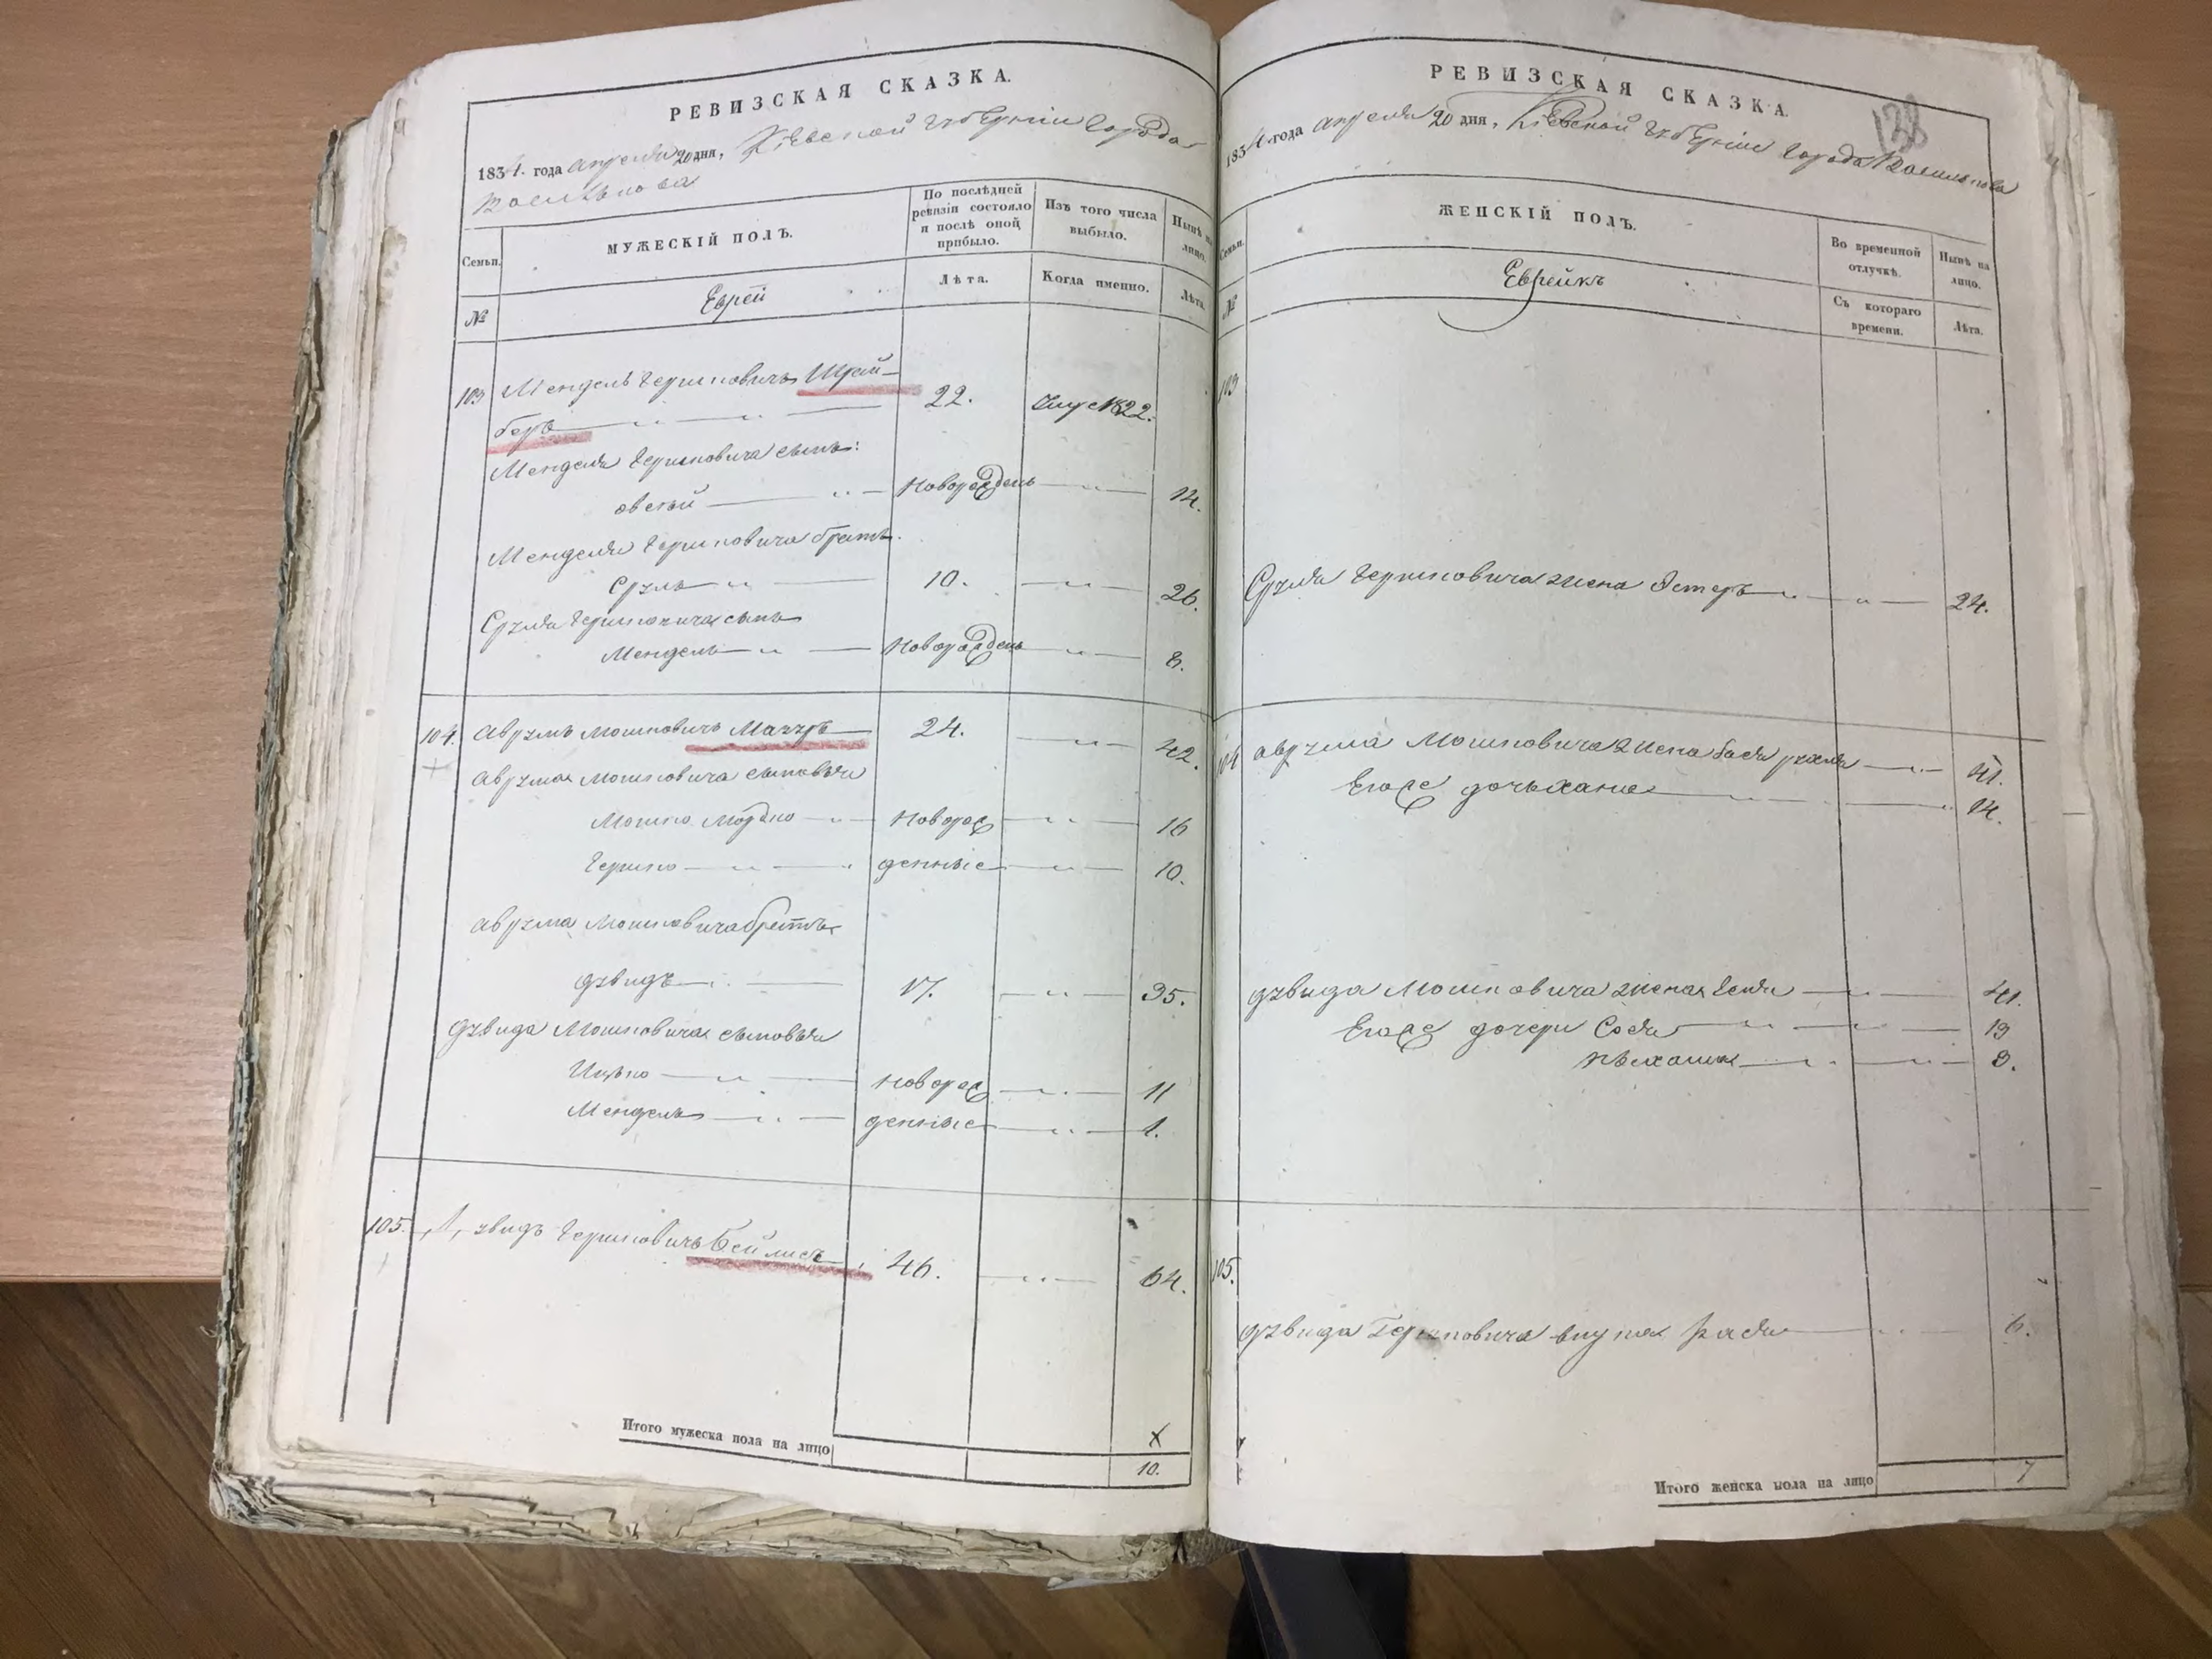 РЕВИЗСКАЯ СКАЗКА.
1834 года апреля 20 дня, Кіевской Губерніи Города
Василькова
Семьи.
МУЖЕСКІЙ ПОЛЪ.
По послѣдней
ревизіи состояло
и послѣ оной
прибыло.
Изъ того числа
выбыло.
Нынѣ на
лицо.
№
Еврей
Лѣта.
Когда именно.
Лѣта.
103 Мендель Гершковичъ Шрай-
беръ 22. 1822.
Менделя Гершковича сынъ:
Новорожденъ 14.
Менделя Гершковича братъ.
Сруль 10. 26.
Сруля Гершковича сынъ
Мендель Новорожденъ 8.
104. Аврумъ Мошковичъ Мазуръ 24. 42.
Аврума Мошковича сыновья
Мошко Мордко Новорож 16
Гершко денные 10.
Аврума Мошковича братъ
Дувидъ 17. 35.
Дувида Мошковича сыновья
Ицько Новорож 11
Мендель денные 1.
105. Дувидъ Гершковичъ Бейлисъ 46. 64.
Итого мужеска пола на лицо
10.
РЕВИЗСКАЯ СКАЗКА.
138
1834 года апреля 20 дня, Кіевской Губерніи Города Василькова
Семьи.
ЖЕНСКІЙ ПОЛЪ.
Во временной
отлучкѣ.
Нынѣ на
лицо.
№
Еврейкъ
Съ котораго
времени.
Лѣта.
103
Сруля Гершковича жена Эстеръ 24.
104 Аврума Мошковича жена Бася Рухля 41.
Его же дочь Хана 14.
Дувида Мошковича жена 41.
Его же дочери Сося 19
9.
105.
Дувида Гершковича внучка Рася 6.
Итого женска пола на лицо
7